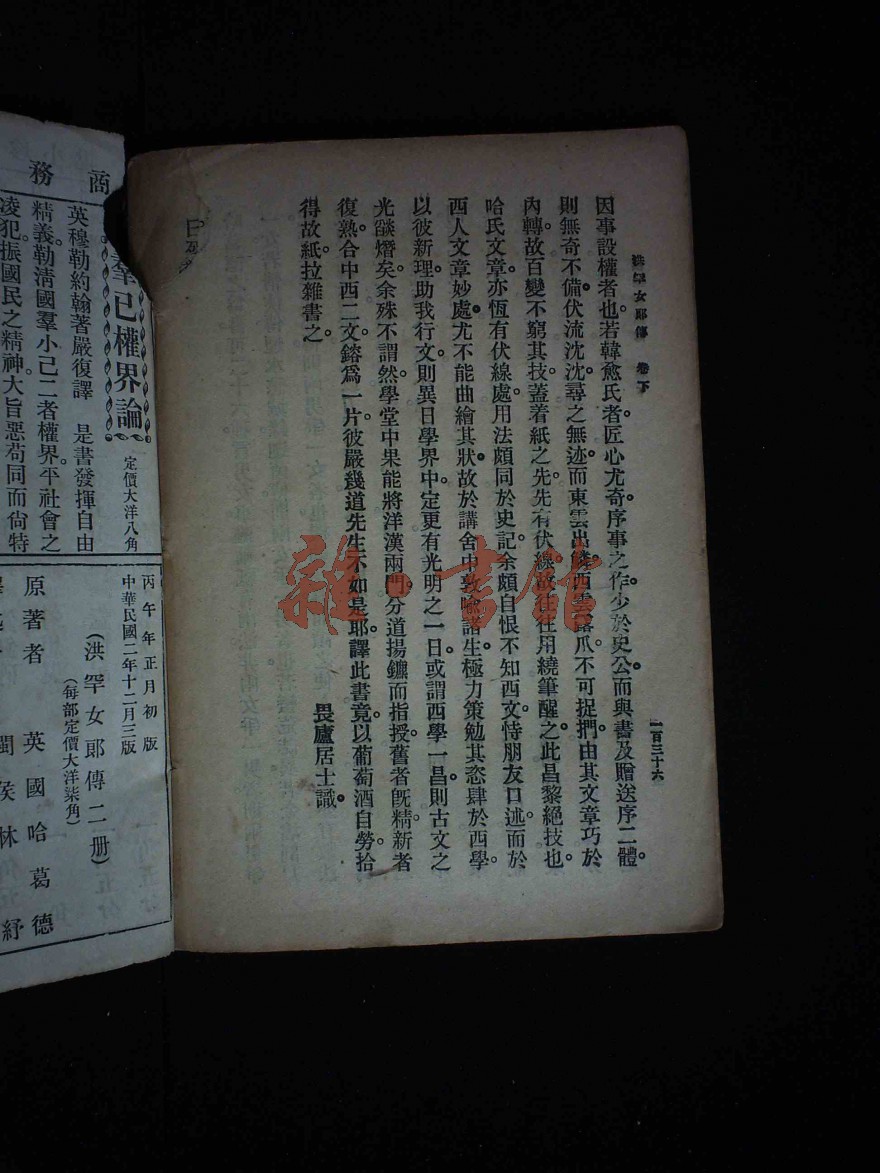 洪罕女郎傳　卷下
一百三十六
因事設權者也。若韓愈氏者。匠心尤奇。序事之作。少於史公。而與書及贈送序二體。
則無奇不備。伏流沈沈。尋之無迹。而東雲出鱗。西雲露爪。不可捉捫。由其文章巧於
內轉。故百變不窮其技。蓋着紙之先。先有伏線。故往往用繞筆醒之。此昌黎絕技也。
哈氏文章。亦恆有伏線處。用法頗同於史記。余頗自恨不知西文。恃朋友口述。而於
西人文章妙處。尤不能曲繪其狀。故於講舍中敦喻諸生。極力策勉其恣肆於西學。
以彼新理。助我行文。則異日學界中定更有光明之一日。或謂西學一昌。則古文之
光燄熸矣。余殊不謂然。學堂中果能將洋漢兩門。分道揚鑣而指授。舊者既精。新者
復熟。合中西二文鎔爲一片。彼嚴幾道先生不如是耶。譯此書竟。以葡萄酒自勞。拾
得故紙。拉雜書之。
畏廬居士識。
商務
羣己權界論
定價大洋八角
英穆勒約翰著嚴復譯　是書發揮自由
精義。勒清國羣小己二者權界。平社會之
凌犯。振國民之精神。大旨惡苟同而尙特
丙午年正月初版
中華民國二年十二月三版
（洪罕女郎傳二册）
（每部定價大洋柒角）
原著者　英國哈葛德
閩侯林紓
雜·書館